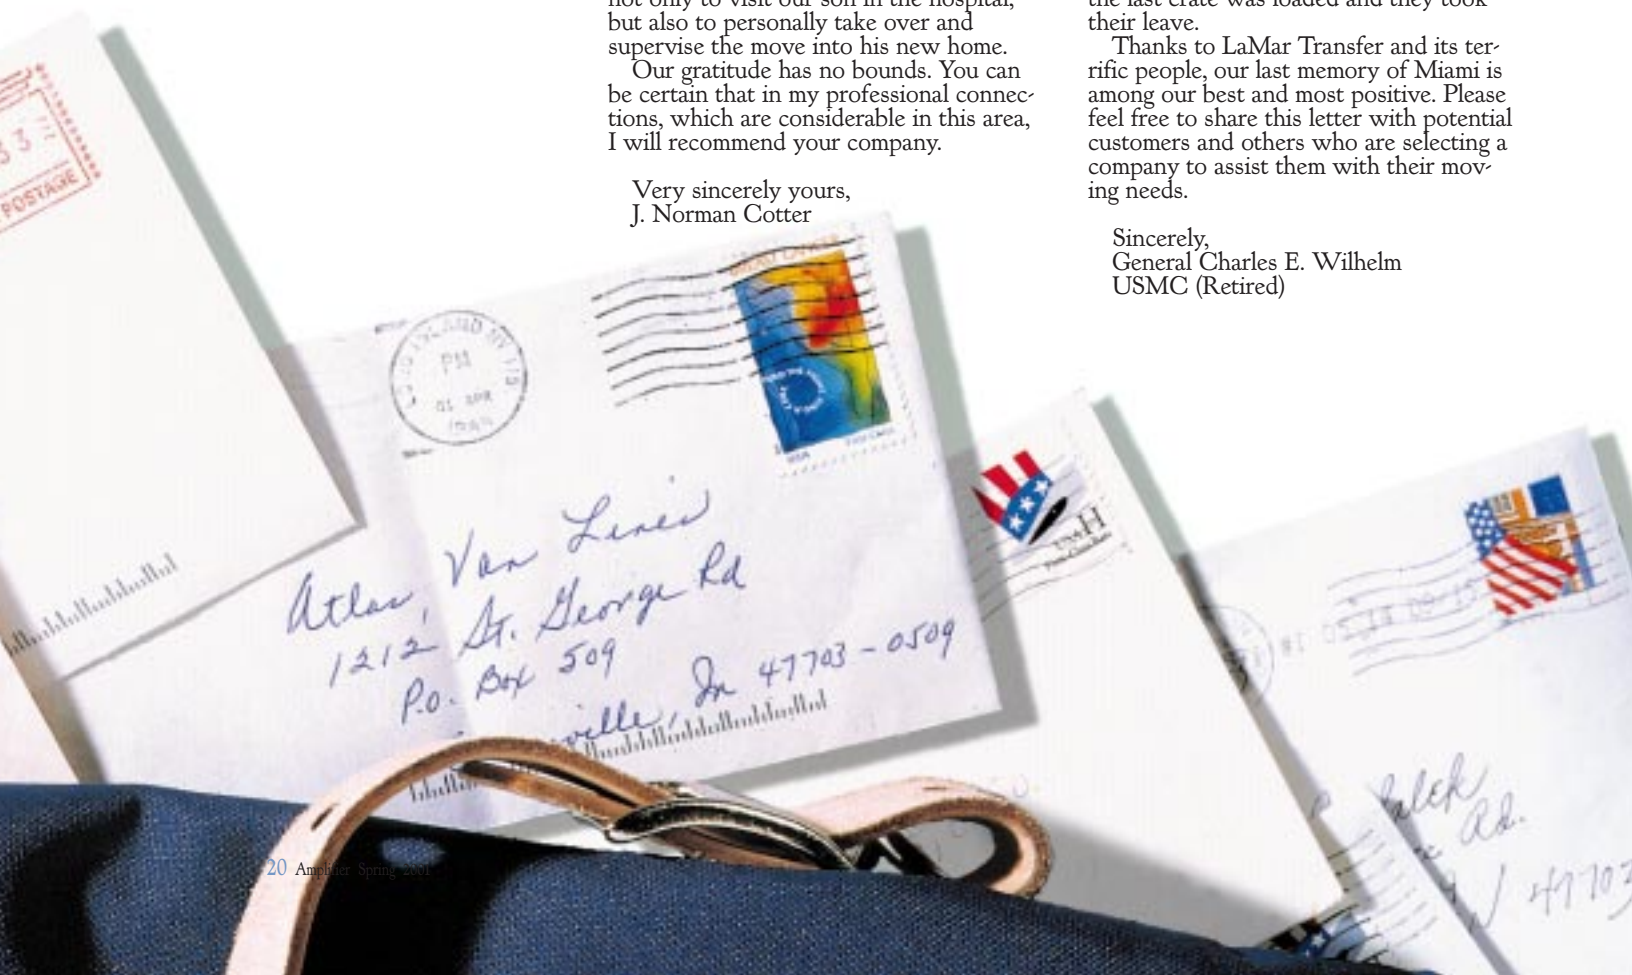 but also to personally take over and
supervise the move into his new home.
Our gratitude has no bounds. You can
be certain that in my professional connec-
tions, which are considerable in this area,
I will recommend your company.
Very sincerely yours,
J. Norman Cotter
their leave.
Thanks to LaMar Transfer and its ter-
rific people, our last memory of Miami is
among our best and most positive. Please
feel free to share this letter with potential
customers and others who are selecting a
company to assist them with their mov-
ing needs.
Sincerely,
General Charles E. Wilhelm
USMC (Retired)
POSTAGE
PM
01 APR
USA
Atlas Van Lines
1212 St. George Rd
P.O. Box 509
ville, In 47703-0509
USA H
Rd.
47703
20 Amplifier Spring 2001